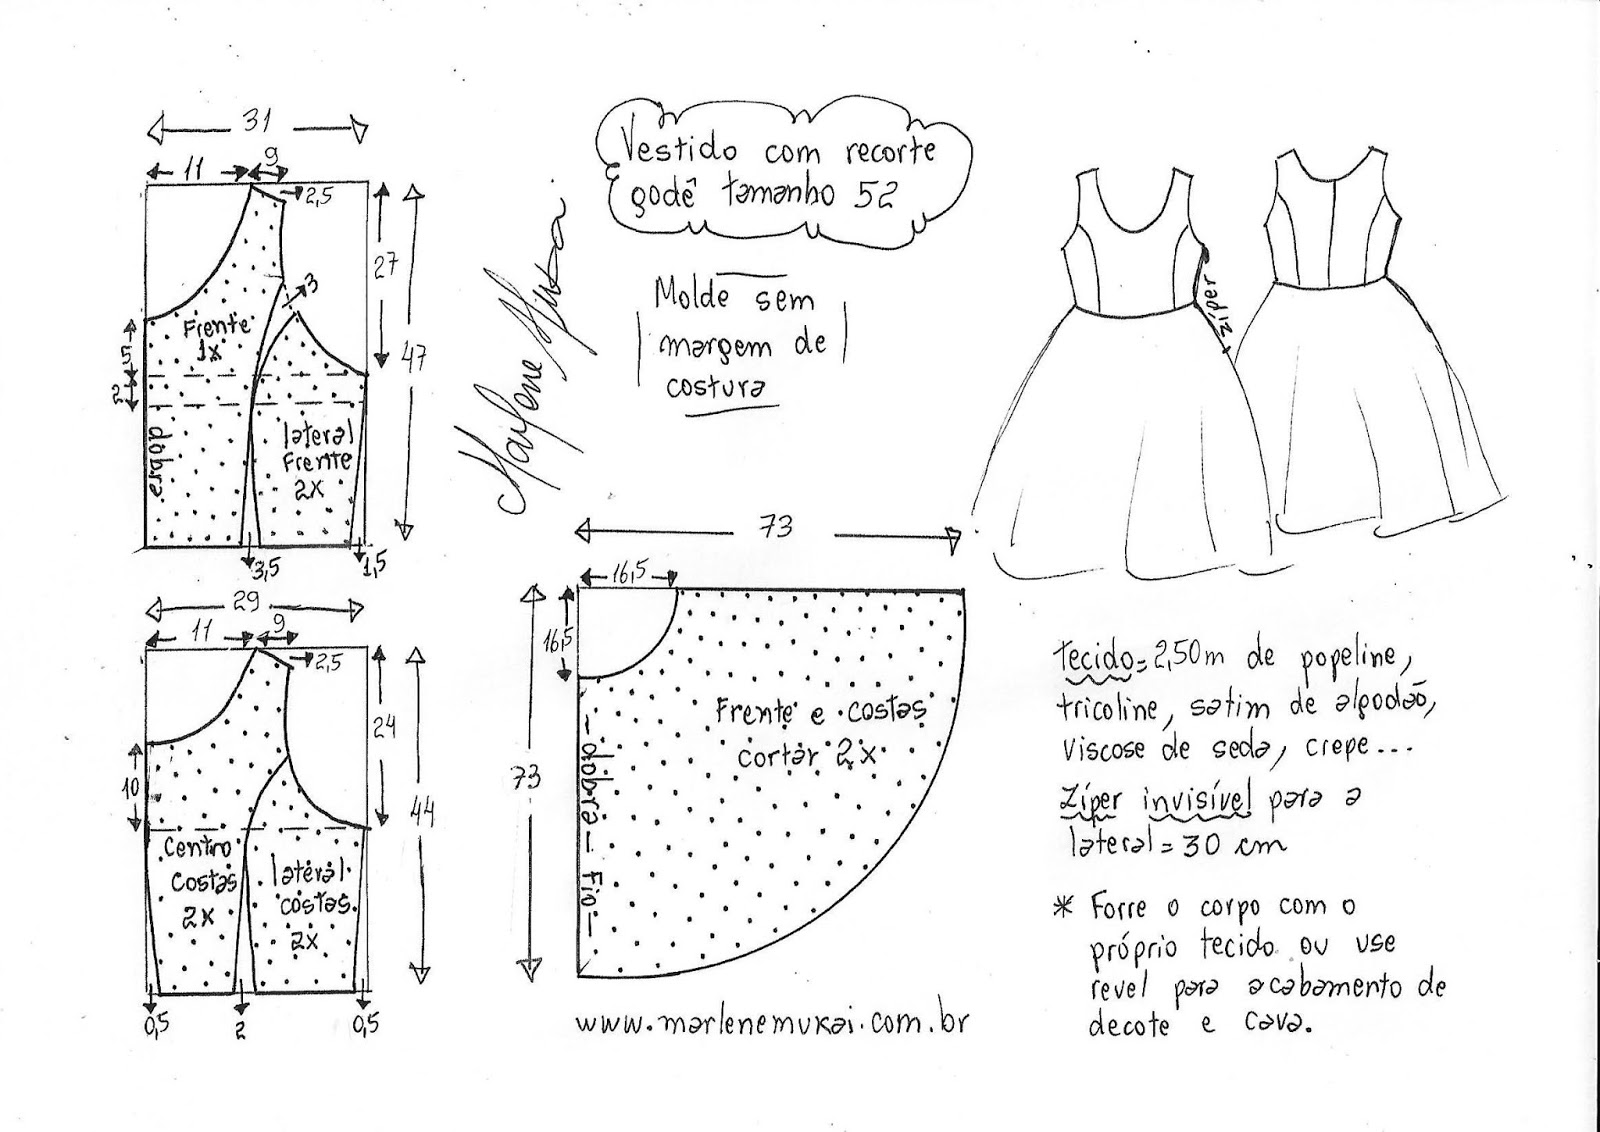 Vestido com recorte
godê tamanho 52
Molde sem
margem de
costura
Marlene Mukai
31
11
9
2,5
27
47
3
5
2
Frente
1x
dobra
lateral
Frente
2x
3,5
1,5
29
11
9
2,5
24
44
10
Centro
Costas
2x
lateral
costas
2x
0,5
2
0,5
73
16,5
16,5
73
Frente e costas
cortar 2x
dobra - Fio
zíper
tecido = 2,50m de popeline,
tricoline, satim de algodão,
viscose de seda, crepe...
Zíper invisível para a
lateral = 30 cm
* Forre o corpo com o
próprio tecido ou use
revel para acabamento de
decote e cava.
www.marlenemukai.com.br